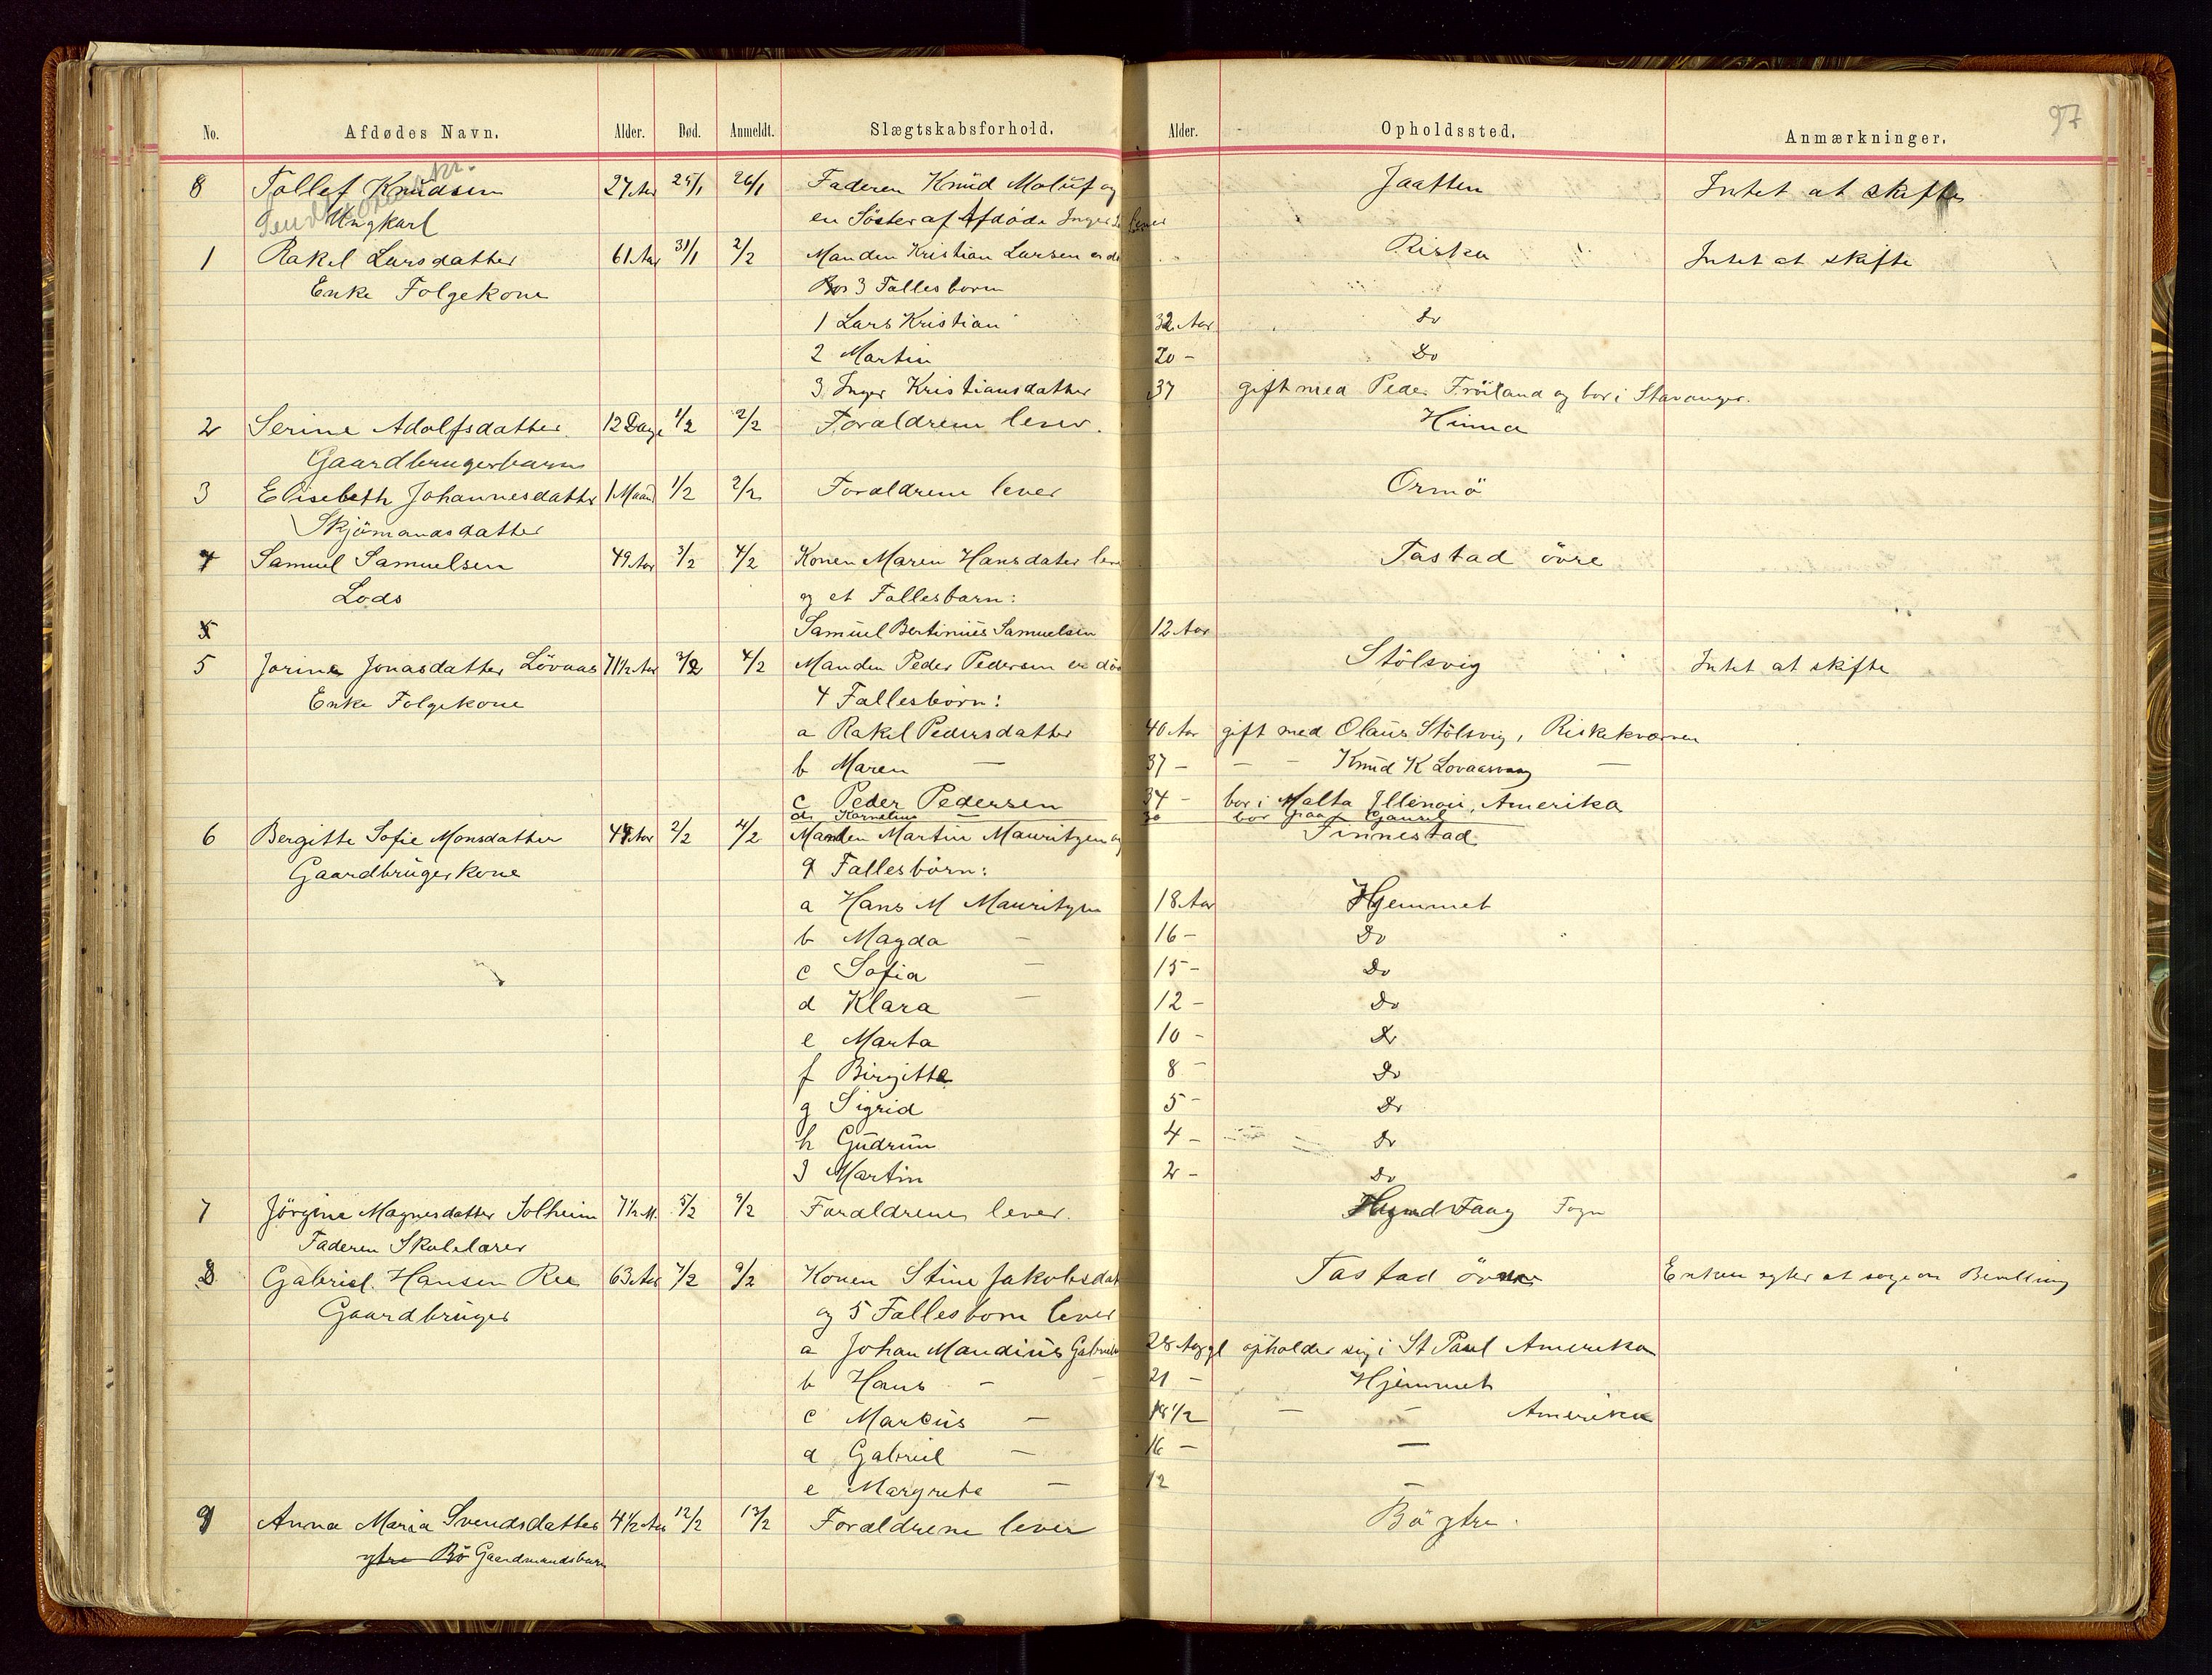 97
No. Afdødes Navn. Alder. Død. Anmeldt. Slægtskabsforhold. Alder. Opholdssted. Anmærkninger.
8 Tollef Knudsen 27 Aar 25/1 26/1 Faderen Knud Moluf og Jaatten Intet at skifte
Ungkarl en Söster af Afdöde Inger lever
1 Rakel Larsdatter 61 Aar 31/1 2/2 Manden Kristian Larsen er dö Riska Intet at skifte
Enke Folgekone 3 Fallesborn
1 Lars Kristian 32 Aar Do
2 Martin 20 - Do
3 Inger Kristiansdatter 37 gift med Peder Fröiland og bor i Stavanger.
2 Serine Adolfsdatter 12 Dage 1/2 2/2 Foraldrene lever. Hinna
Gaardbrugerbarn
3 Elisebeth Johannesdatter 1 Maand 1/2 2/2 Foraldrene lever Ormö
Skjömandsdatter
4 Samuel Samuelsen 49 Aar 3/2 4/2 Konen Maren Hansdater leve Tastad övre
Lods og et Fallesbarn:
Samuel Bertinius Samuelsen 12 Aar
5 Jorine Jonasdatter Lövaas 71 1/2 Aar 3/2 4/2 Manden Peder Pedersen er död Stölsvig Intet at skifte
Enke Folgekone 4 Fallesbörn:
a Rakel Pedersdatter 40 Aar gift med Olaus Stölsvig, Riskekvarven
b Maren — 37 - — - Knud K Lovaasvaag —
c Peder Pedersen 34 - bor i Malta Illinois, Amerika
d Kornelius — 30 bor Gausel
6 Bergitte Sofie Monsdatter 47 Aar 2/2 4/2 Manden Martin Mauritzen og Finnestad
Gaardbrugerkone 9 Fallesbörn:
a Hans M Mauritzen 18 Aar Hjemmet
b Magda — 16 - Do
c Sofia — 15 - Do
d Klara — 12 - Do
e Marta 10 - Do
f Birgitte 8 - Do
g Sigrid 5 - Do
h Gudrun 4 - Do
J Martin 2 - Do
7 Jörgine Magnesdatter Solheim 7 1/2 M. 5/2 9/2 Foraldrene lever. Fogn
Faderen Skolelarer
8 Gabriel Hansen Ree 63 Aar 7/2 9/2 Konen Stine Jakobsdat Tastad övre Enken agter at söge om Bevilling
Gaardbruger og 5 Fallesborn lever
a Johan Mandius Gabriels 28 Aar gl opholder sig i St Paul Amerika
b Hans - - 21 - Hjemmet
c Marcus — 18 1/2 — - Amerika
d Gabriel — 16 - —
e Margrete — 12 —
9 Anna Maria Svendsdatter 4 1/2 Aar 12/2 13/2 Foraldrene lever Bö ytre.
ytre Bö Gaardmandsbarn